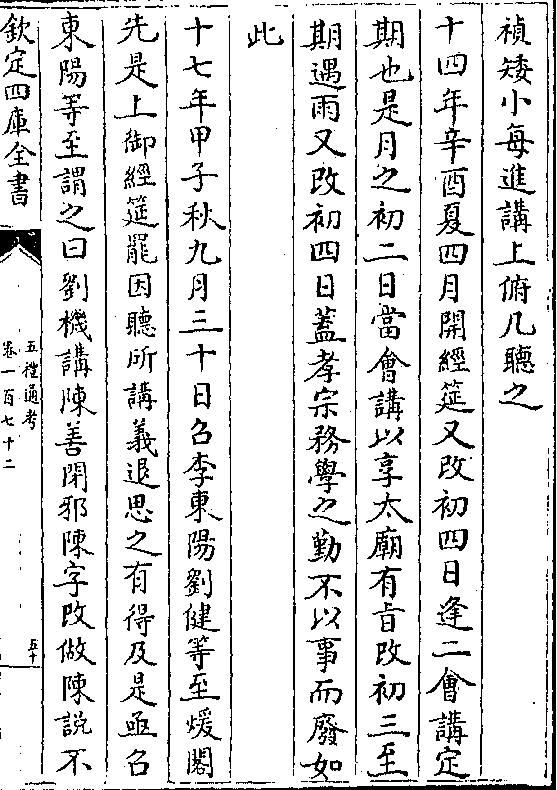 禎矮小每進講上俯几聽之
十四年辛酉夏四月開經筵又改初四日逢二會講定
期也是月之初二日當會講以享太廟有㫖改初三至
期遇雨又改初四日蓋孝宗務學之勤不以事而廢如
此
十七年甲子秋九月三十日召李東陽劉健等至煖閣
先是上御經筵罷因聽所講義退思之有得及是亟召
東陽等至謂之曰劉機講陳善閉邪陳字改做陳説不
欽定四庫全書
五禮通考
卷一百七十二
五十